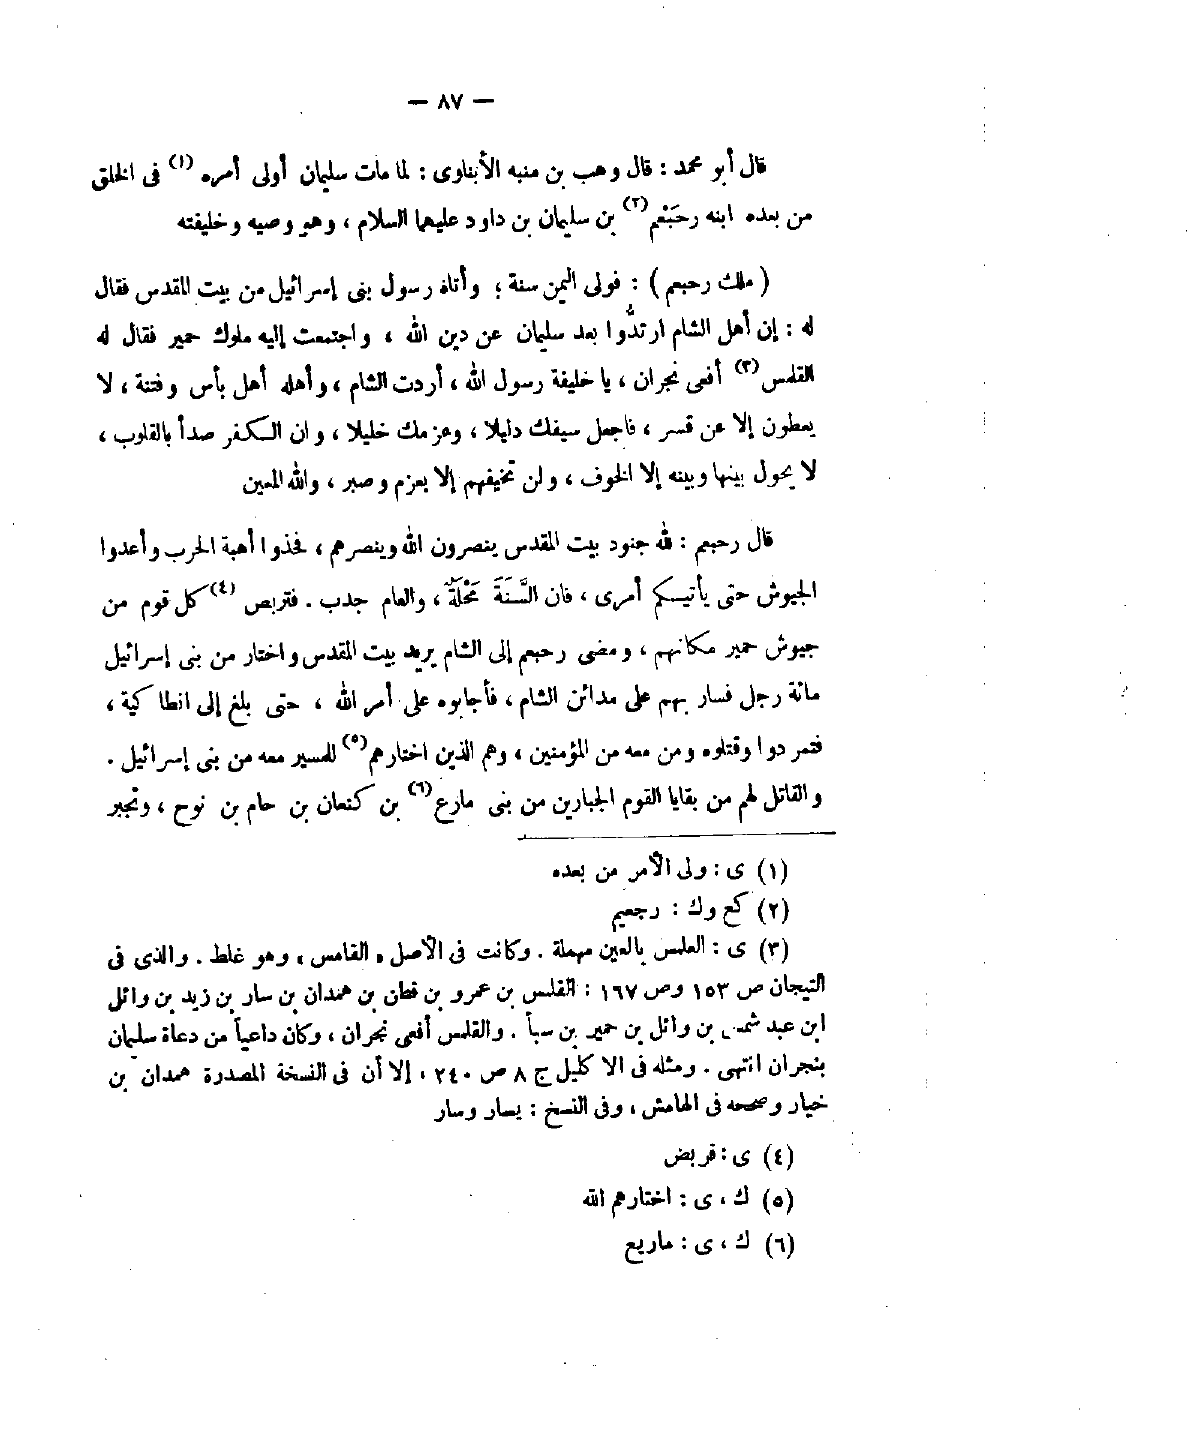 — ٨٧ —
قال أبو محمد : قال وهب بن منبه الأبناوى : لما مات سليمان أولى أمره (١) فى الخلق
من بعده ابنه رحَبْعم (٢) بن سليمان بن داود عليهما السلام ، وهو وصيه وخليفته
( ملك رحبعم ) : فولى اليمن سنة ؛ وأتاه رسول بنى إسرائيل من بيت المقدس فقال
له : إن أهل الشام ارتدُّوا بعد سليمان عن دين الله ، واجتمعت إليه ملوك حمير فقال له
القلمس (٣) أفعى نجران ، يا خليفة رسول الله ، أردت الشام ، وأهله أهل بأس وفتنة ، لا
يعطون إلا عن قسر ، فاجعل سيفك دليلا ، وعزمك خليلا ، وان الكفر صدأ بالقلوب ،
لا يحول بينها وبينه إلا الخوف ، ولن تخيفهم إلا بعزم وصبر ، والله المعين
قال رحبعم : لله جنود بيت المقدس ينصرون الله وينصرهم ، فخذوا أهبة الحرب وأعدوا
الجيوش حتى يأتيكم أمرى ، فان السَّنَةَ مَحْلَةٌ ، والعام جدب . فتربص (٤) كل قوم من
جيوش حمير مكانهم ، ومضى رحبعم إلى الشام يريد بيت المقدس واختار من بنى إسرائيل
مائة رجل فسار بهم على مدائن الشام ، فأجابوه على أمر الله ، حتى بلغ إلى انطاكية ،
فتمردوا وقتلوه ومن معه من المؤمنين ، وهم الذين اختارهم (٥) للمسير معه من بنى إسرائيل .
والقاتل لهم من بقايا القوم الجبارين من بنى مارع (٦) بن كنعان بن حام بن نوح ، وتجبر
(١) ى : ولى الأمر من بعده
(٢) كع وك : رجعيم
(٣) ى : العلمس بالعين مهملة . وكانت فى الأصل « القامس » وهو غلط . والذى فى
التيجان ص ١٥٣ وص ١٦٧ : القلمس بن عمرو بن قطن بن همدان بن سار بن زيد بن وائل
ابن عبد شمس بن وائل بن حمير بن سبأ . والقلمس أفعى نجران ، وكان داعياً من دعاة سليمان
بنجران انتهى . ومثله فى الاكليل ج ٨ ص ٢٤٠ ، إلا أن فى النسخة المصدرة همدان بن
خيار وصححه فى الهامش ، وفى النسخ : يسار وسار
(٤) ى : قربض
(٥) ك ، ى : اختارهم الله
(٦) ك ، ى : ماريع